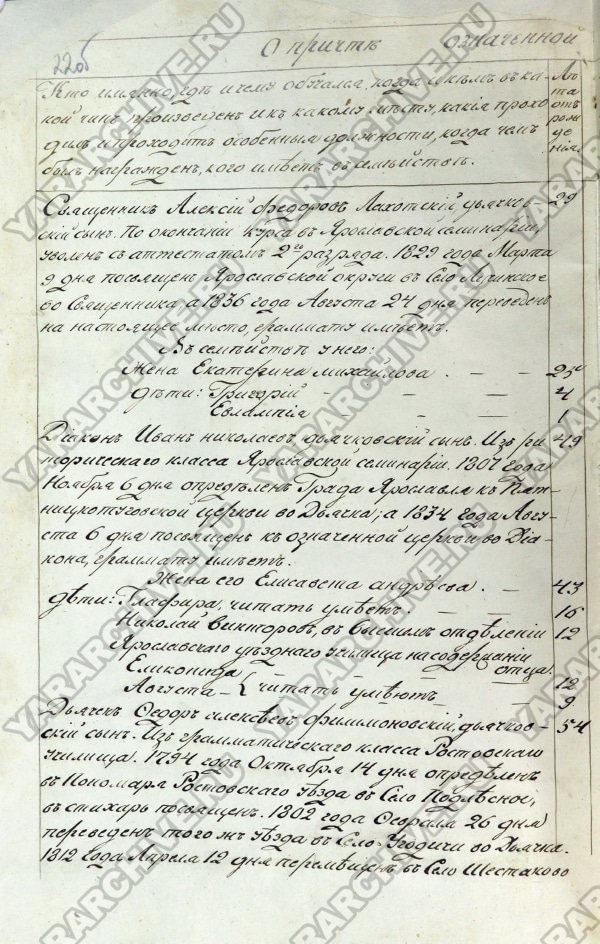 22об
О причтѣ означенной
Кто имянно, гдѣ и чему обучался, когда и кѣмъ въ ка-
кой чинъ произведенъ и къ какому мѣсту, какія прохо
дилъ и проходитъ особенныя должности, когда чемъ
былъ награжденъ, кого имѣетъ въ семѣйствѣ.
Лѣ
та
отъ
рож
де
нія.
Священникъ Алексій Федоровъ Лахотскій, дьячков- 29
скій сынъ. По окончаніи курса въ Ярославской семинаріи,
уволенъ съ аттестатомъ 2го разряда. 1829 года Марта
9 дня посвященъ Ярославской округи въ Село
во Священника, а 1836 года Августа 24 дня переведенъ
на настоящее мѣсто, грammату имѣетъ.
Въ семѣйствѣ у него:
Жена Екатерина Михайлова. — — 25
дѣти: Григорій — — — 4
Евлампія — — — 1
Діаконъ Иванъ Николаевъ, дьячковскій сынъ. Изъ ри 49
торическаго класса Ярославской семинаріи. 1807 года
Ноября 6 дня опредѣленъ Града Ярославля къ Пят-
ницкотуговской церкви во Дьячка; а 1834 года Авгу-
ста 6 дня посвященъ къ означенной церкви во Діа-
кона, граммату имѣетъ.
Жена его Елисавета Андрѣева. — 43
Дѣти: Глафира, читать умѣетъ. — — — 16
Николай Викторовъ, въ высшемъ отдѣленіи 12
Ярославскаго уѣзднаго Училища на содержаніи
отца.
Еликонида — 12
Августа — { читать умѣютъ — 9
Дьячекъ Ѳедоръ Алексѣевъ Филимоновскій, дьячков- 54
скій сынъ. Изъ грамматическаго класса Ростовскаго
училища. 1794 года Октября 14 дня опредѣленъ
въ Пономаря Ростовскаго уѣзда въ Село Подлѣсное,
въ стихарь посвященъ. 1802 года Февраля 26 дня
переведенъ того жъ уѣзда въ Село Угодичи во Дьячка.
1812 года Апреля 12 дня перемѣщенъ въ Село Шестаково
YARARCHIVE.RU